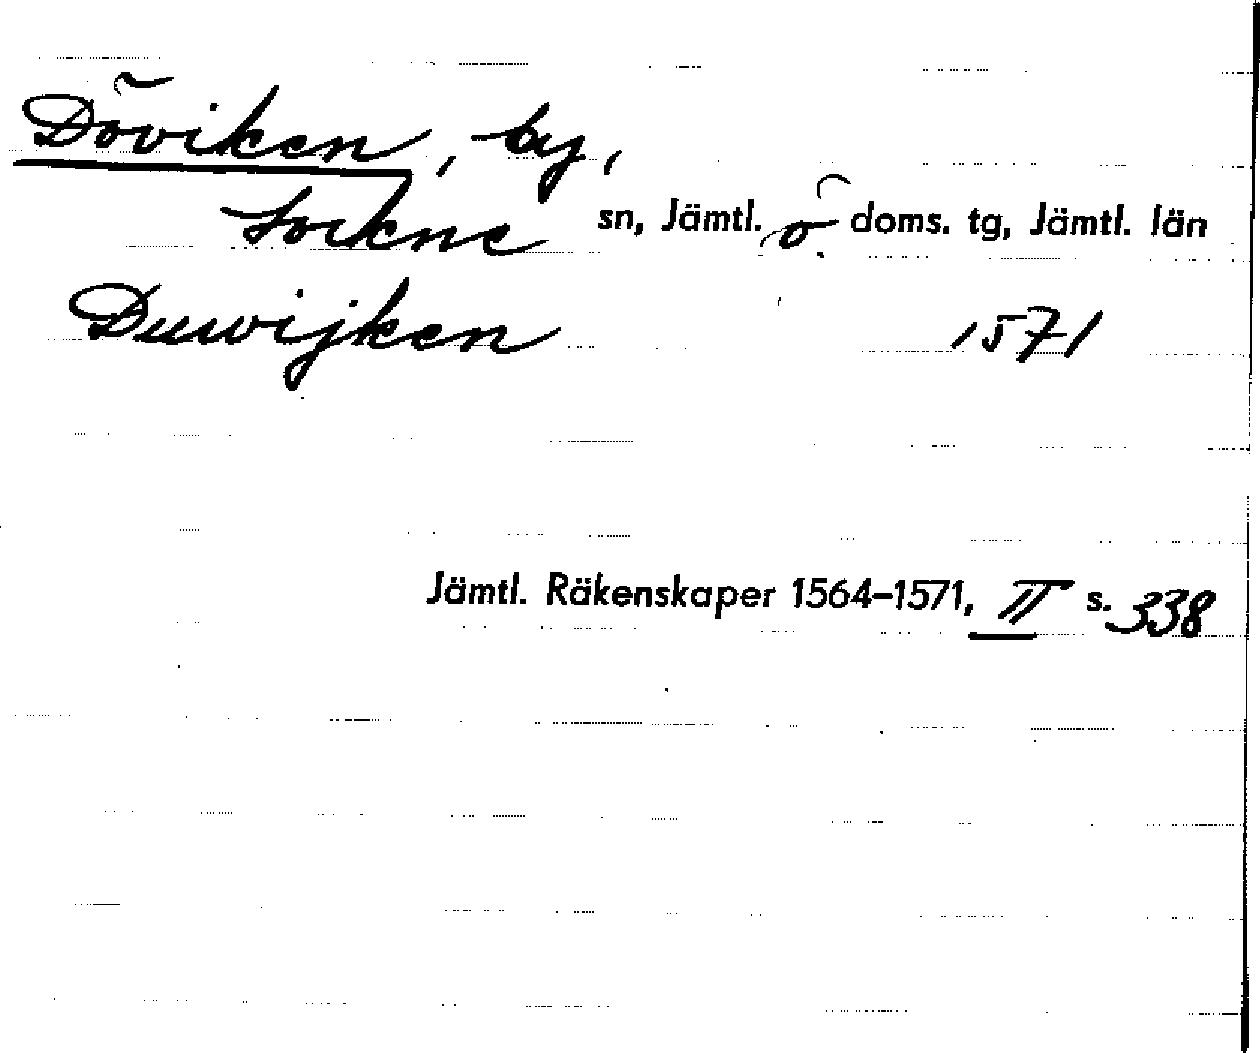 Döviken, by,
Lockne sn, Jämtl. ö doms. tg, Jämtl. län
Duwijken 1571
Jämtl. Räkenskaper 1564-1571, II s. 338